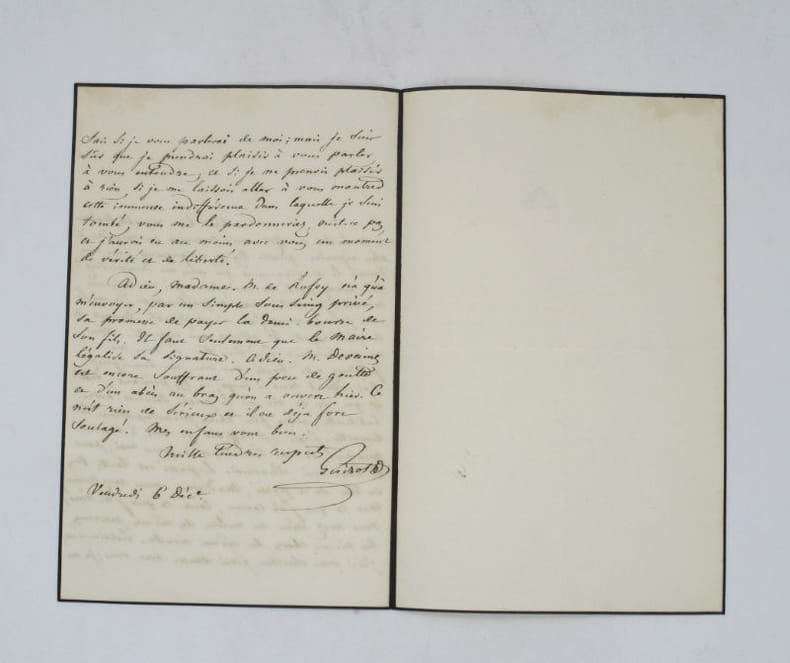 sais si je vous parlerai de moi; mais je suis
sûr que je prendrai plaisir à vous parler
à vous entendre, et si je ne prenois plaisir
à rien, si je me laissois aller à vous montrer
cette immense indifférence dans laquelle je suis
tombé, vous me le pardonneriez, n'est-ce pas,
et j'aurois eu au moins, avec vous, un moment
de vérité et de liberté.
Adieu, madame. M. de n'a qu'à
m'envoyer, par un simple sous seing privé,
sa promesse de payer la demi-bourse de
son fils. Il faut seulement que le Maire
légalise sa signature. Adieu. M. Devaines
est encore souffrant d'un peu de goutte
et d'un abcès au bras qu'on a ouvert hier. Ce
n'est rien de sérieux et il est déjà fort
soulagé. Mes enfans vont bien.
Mille tendres respects
Guizot
Vendredi 6 Déc.